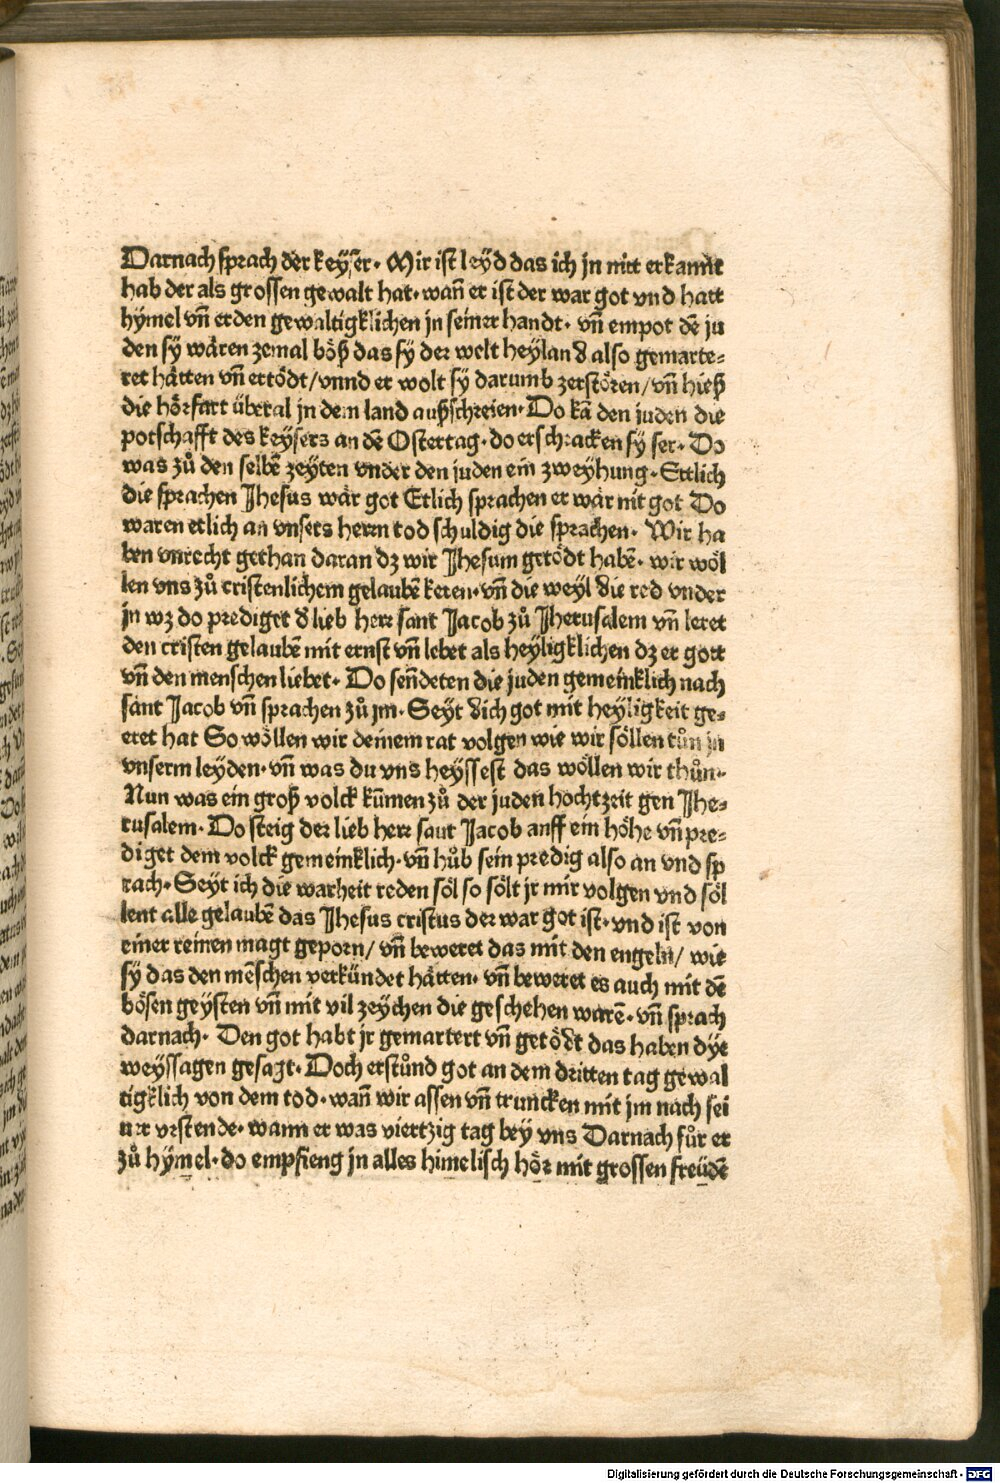 Darnach sprach der keyser· Mir ist leyd das ich jn nitt erkannt
hab der als grossen gewalt hat· wañ er ist der war got vnd hatt
hymel vñ erden gewaltigklichen jn seiner handt· vñ empot dē ju
den sy wären zemal böß das sy der welt heyland also gemarte⸗
ret hätten vñ ertödt/vnnd er wolt sy darumb zerstören/vñ hieß
die hörfart überal jn dem land außschreien· Do kā den juden die
potschafft des keysers an dē Ostertag· do erschracken sy ser· Do
was zů den selbē zeyten vnder den juden ein zweyhung· Ettlich
die sprachen Jhesus wär got Etlich sprachen er wär nit got Do
waren etlich an vnsers herrn tod schuldig die sprachen· Wir ha
ben vnrecht gethan daran dz wir Jhesum getödt habē· wir wöl
len vns zů cristenlichem gelaubē keren· vñ die weyl die red vnder
jn wz do prediget d lieb herr sant Jacob zů Jherusalem vñ leret
den cristen gelaubē mit ernst vñ lebet als heyligklichen dz er gott
vñ den menschen liebet· Do señdeten die juden gemeinklich nach
sant Jacob vñ sprachen zů jm· Seyt dich got mit heyligkeit ge⸗
eret hat So wöllen wir deinem rat volgen wie wir söllen tůn jn
vnserm leyden· vñ was du vns heyssest das wöllen wir thůn·
Nun was ein groß volck kūmen zů der juden hochtzeit gen Jhe⸗
rusalem· Do steig der lieb herr saut Jacob auff ein höhe vñ pre⸗
diget dem volck gemeinklich· vñ hůb sein predig also an vnd sp
rach· Seyt ich die warheit reden söl so sölt jr mir volgen vnd söl
lent alle gelaubē das Jhesus cristus der war got ist· vnd ist von
einer reinen magt geporn/ vñ beweret das mit den engeln/ wie
sy das den mēschen verkündet hätten· vñ beweret es auch mit dē
bösen geysten vñ mit vil zeychen die geschehen warē· vñ sprach
darnach· Den got habt jr gemartert vñ getödt das haben dye
weyssagen gesagt· Doch erstůnd got an dem dritten tag gewal
tigklich von dem tod· wañ wir assen vñ truncken mit jm nach sei
ner vrstende· wann er was viertzig tag bey vns Darnach fůr er
zů hymel· do empfieng jn alles himelisch hör mit grossen freüdē
Digitalisierung gefördert durch die Deutsche Forschungsgemeinschaft - DFG